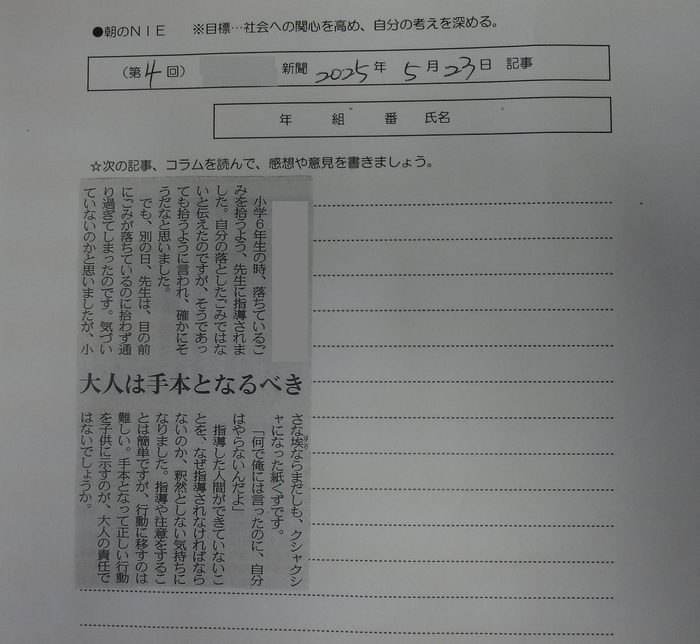 ●朝のNIE　※目標…社会への関心を高め、自分の考えを深める。
（第4回）　新聞 2025年 5月23日 記事
年　組　番　氏名
☆次の記事、コラムを読んで、感想や意見を書きましょう。
大人は手本となるべき
小学6年生の時、落ちているご
みを拾うよう、先生に指導されま
した。自分の落としたごみではな
いと伝えたのですが、そうであっ
ても拾うように言われ、確かにそ
うだなと思いました。
でも、別の日、先生は、目の前
にごみが落ちているのに拾わず通
り過ぎてしまったのです。気づい
ていないのかと思いましたが、小
さな埃ならまだしも、クシャクシ
ャになった紙くずです。
「何で俺には言ったのに、自分
はやらないんだよ」
指導した人間ができていないこ
とを、なぜ指導されなければなら
ないのか、釈然としない気持ちに
なりました。指導や注意をするこ
とは簡単ですが、行動に移すのは
難しい。手本となって正しい行動
を子供に示すのが、大人の責任で
はないでしょうか。